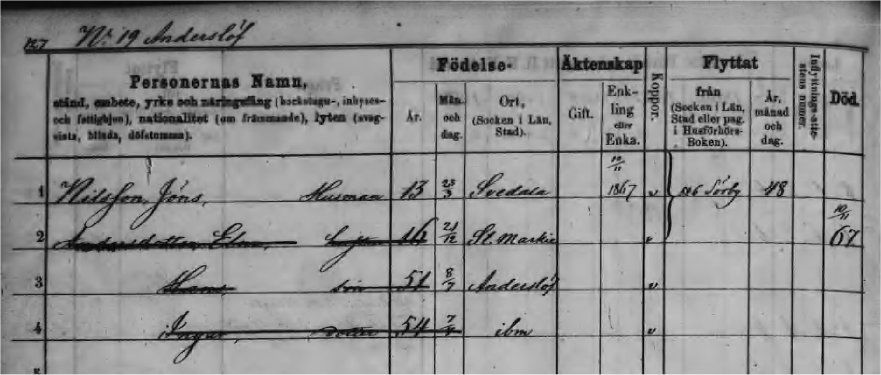 127 No 19 Anderslöf
Personernas Namn,
stånd, embete, yrke och näringsfång (backstugu-, inhyses-
och fattighjon), nationalitet (om främmande), lyten (svag-
sinta, blinda, döfstumma).
Födelse-
År.
Mån. och dag.
Ort,
(Socken i Län,
Stad).
Äktenskap
Gift.
Enk-
ling
eller
Enka.
Koppor.
Flyttat
från
(Socken i Län,
Stad eller pag.
i Husförhörs-
Boken).
År,
månad
och
dag.
Inflyttnings-atte-
stens nummer.
Död.
1 Nilsson Jöns, Husman 13 23/3 Svedala 10/11 1867 v Sörby 48
2 Andersdotter Elna, hustru 16 21/12 St. Markie v 10/11 67
3 Hans, son 51 8/7 Anderslöf v
4 Inger, dotter 54 ibm v